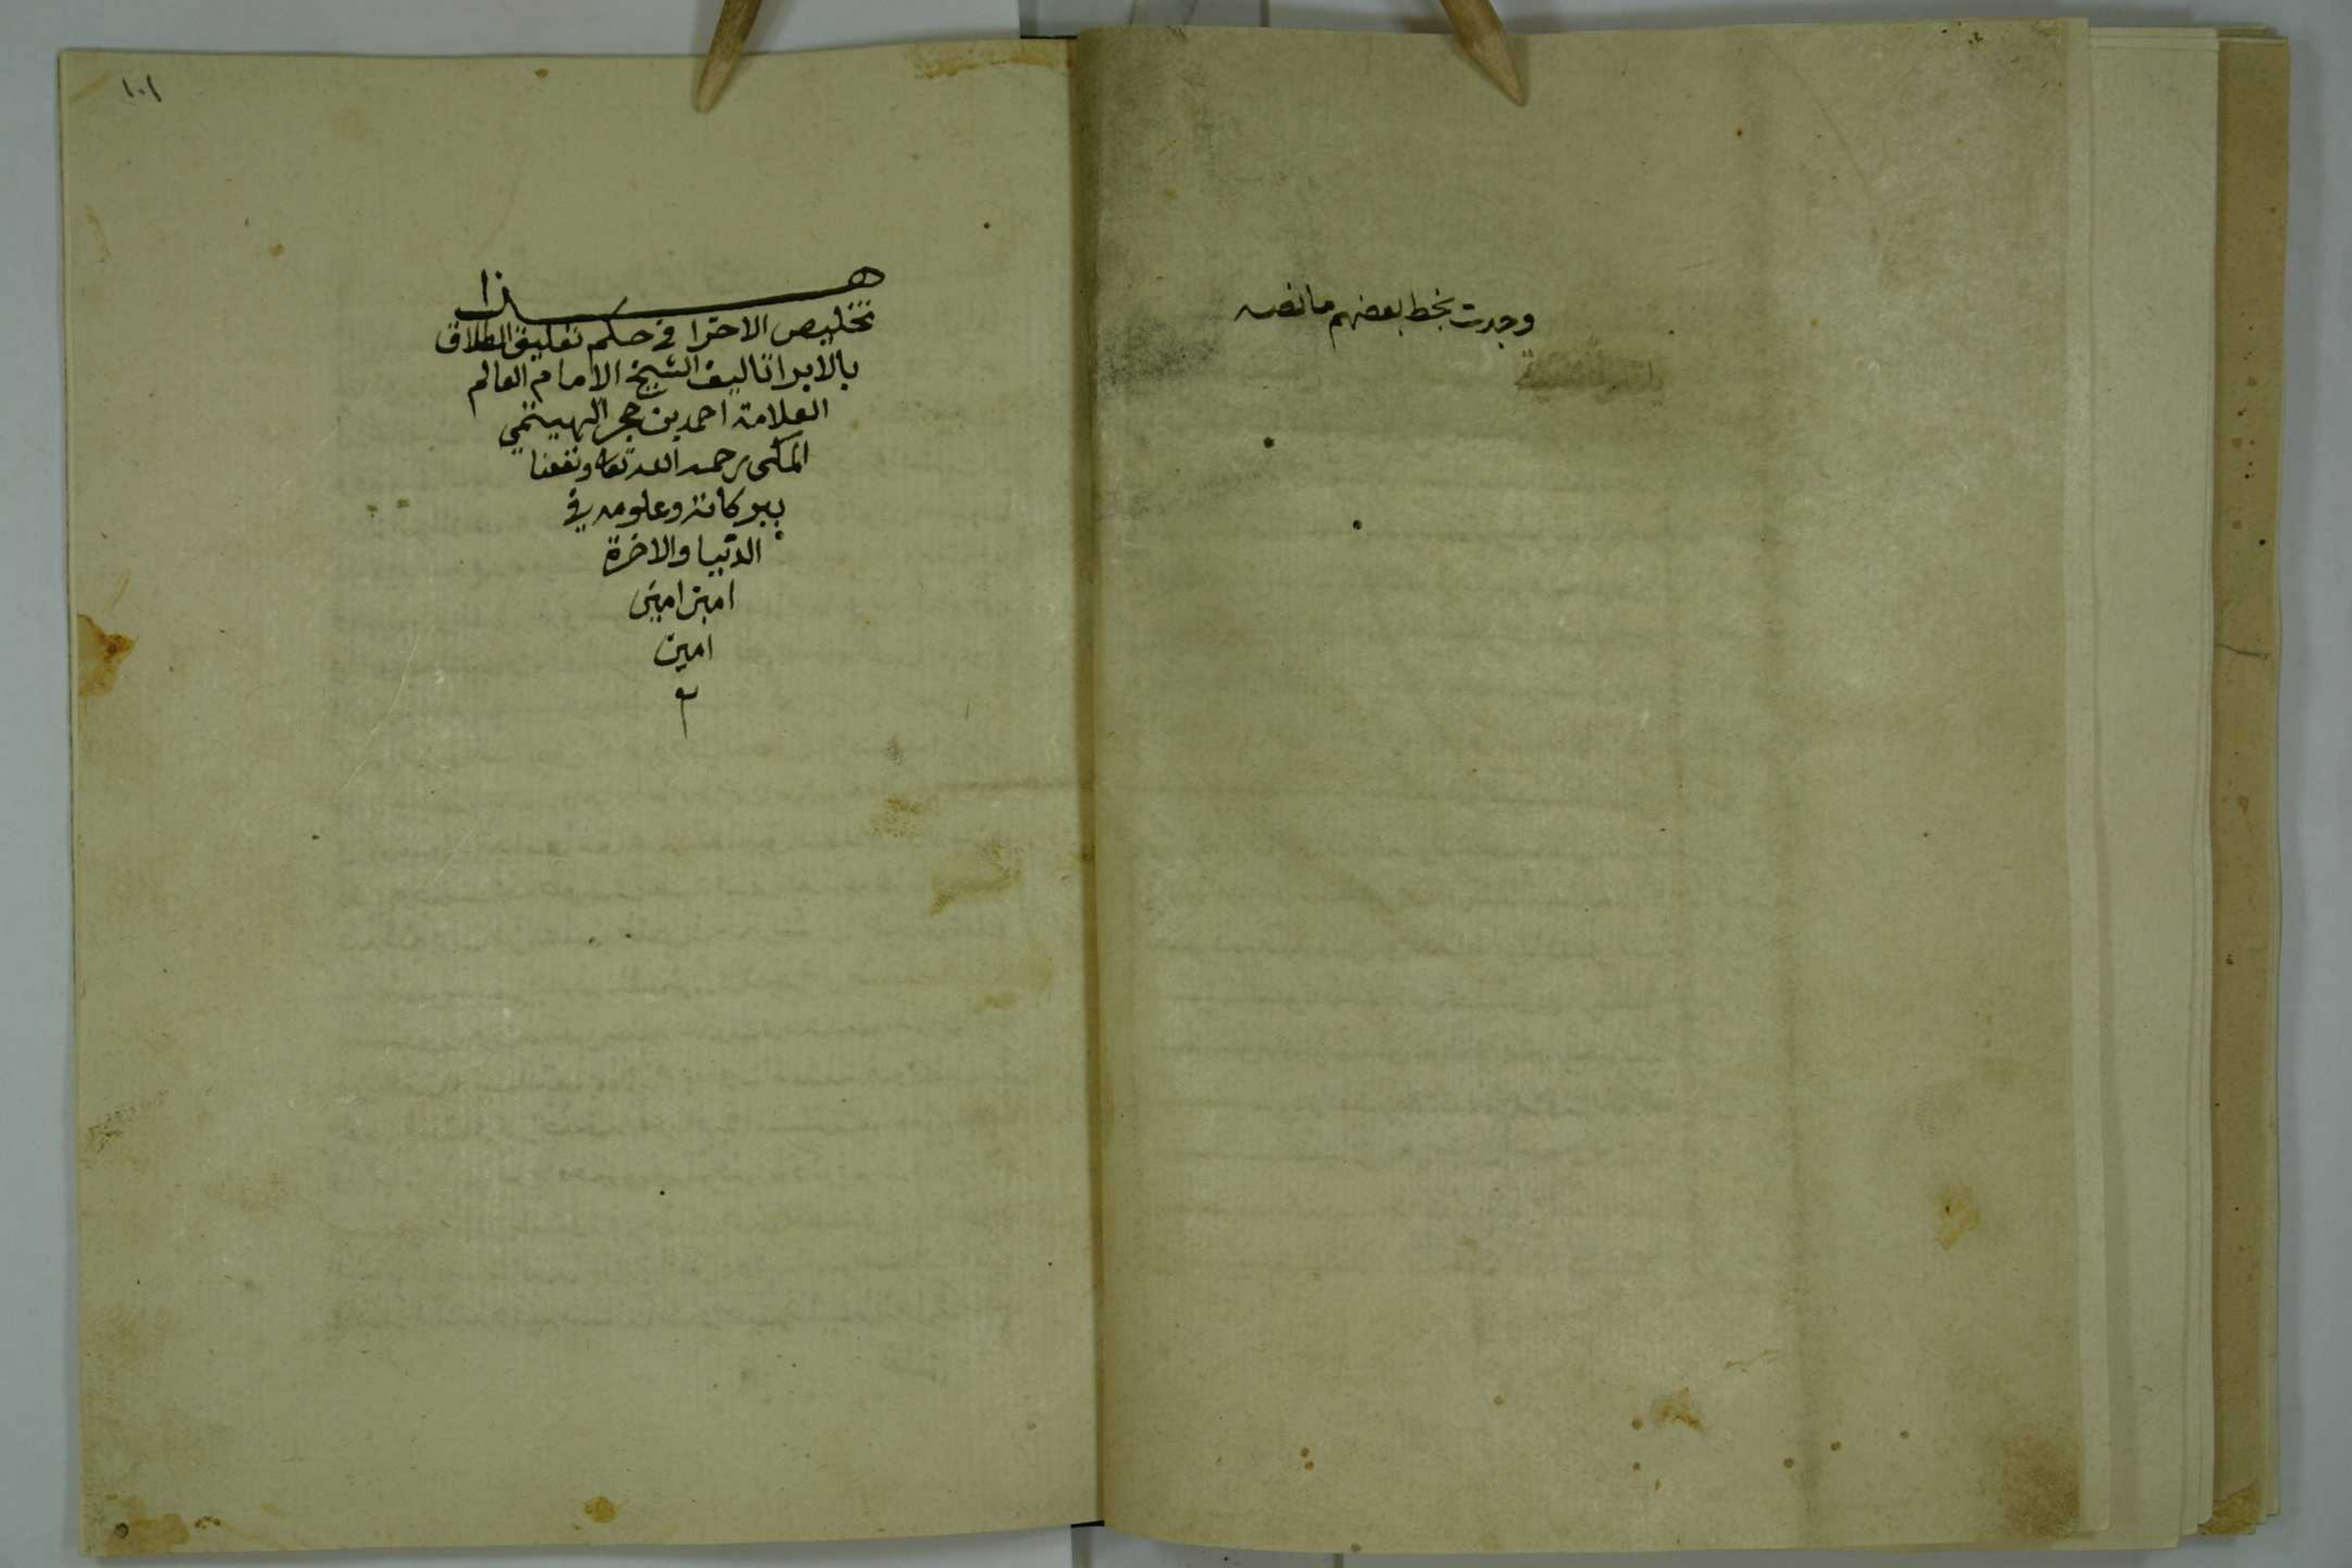 وجدت بخط بعضهم ما نصه
١٠١
هذا
تخليص الاحرا في حكم تعليق الطلاق
بالابرا تاليف الشيخ الامام العالم
العلامة احمد بن حجر الهيتمي
المكى رحمه الله تعا ونفعنا
ببركاته وعلومه في
الدنيا والاخرة
امين امين
امين
م